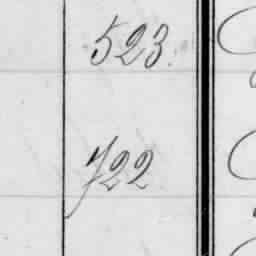 523.
722